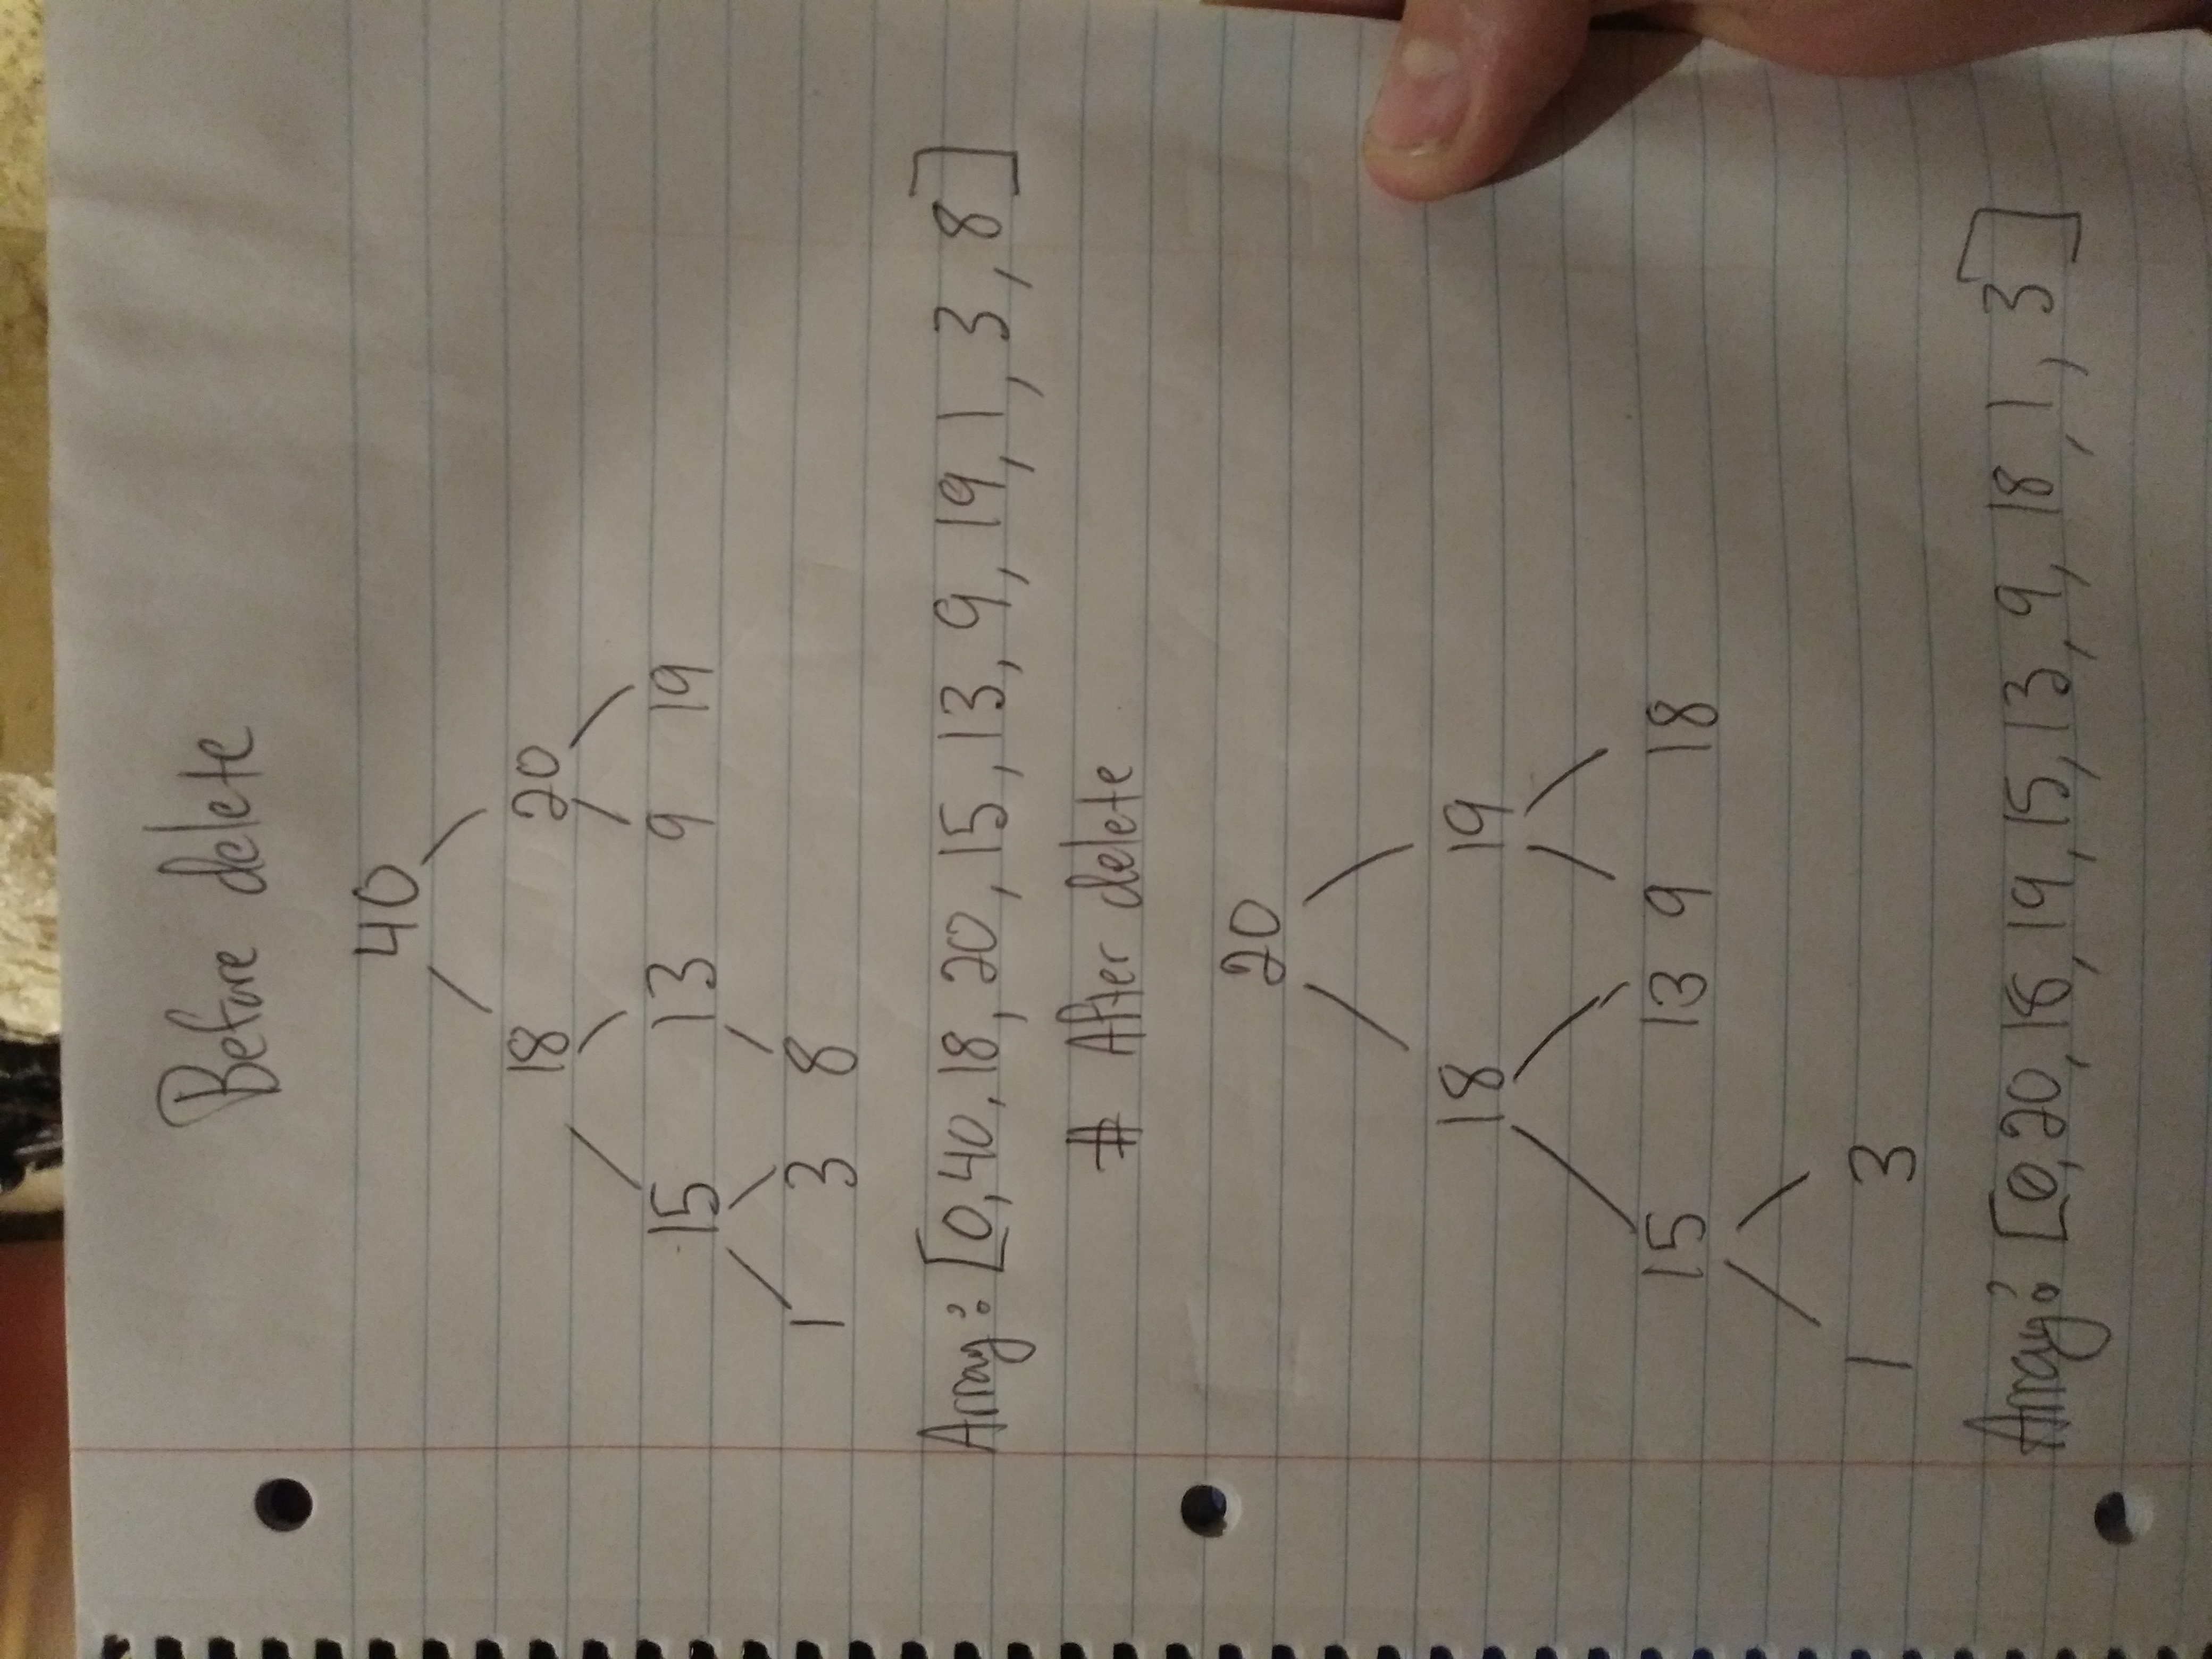 Before delete
40
18 20
15 13 9 19
1 3 8
Array: [0, 40, 18, 20, 15, 13, 9, 19, 1, 3, 8]
# After delete
20
18 19
15 13 9 18
1 3
Array: [0, 20, 18, 19, 15, 13, 9, 18, 1, 3]